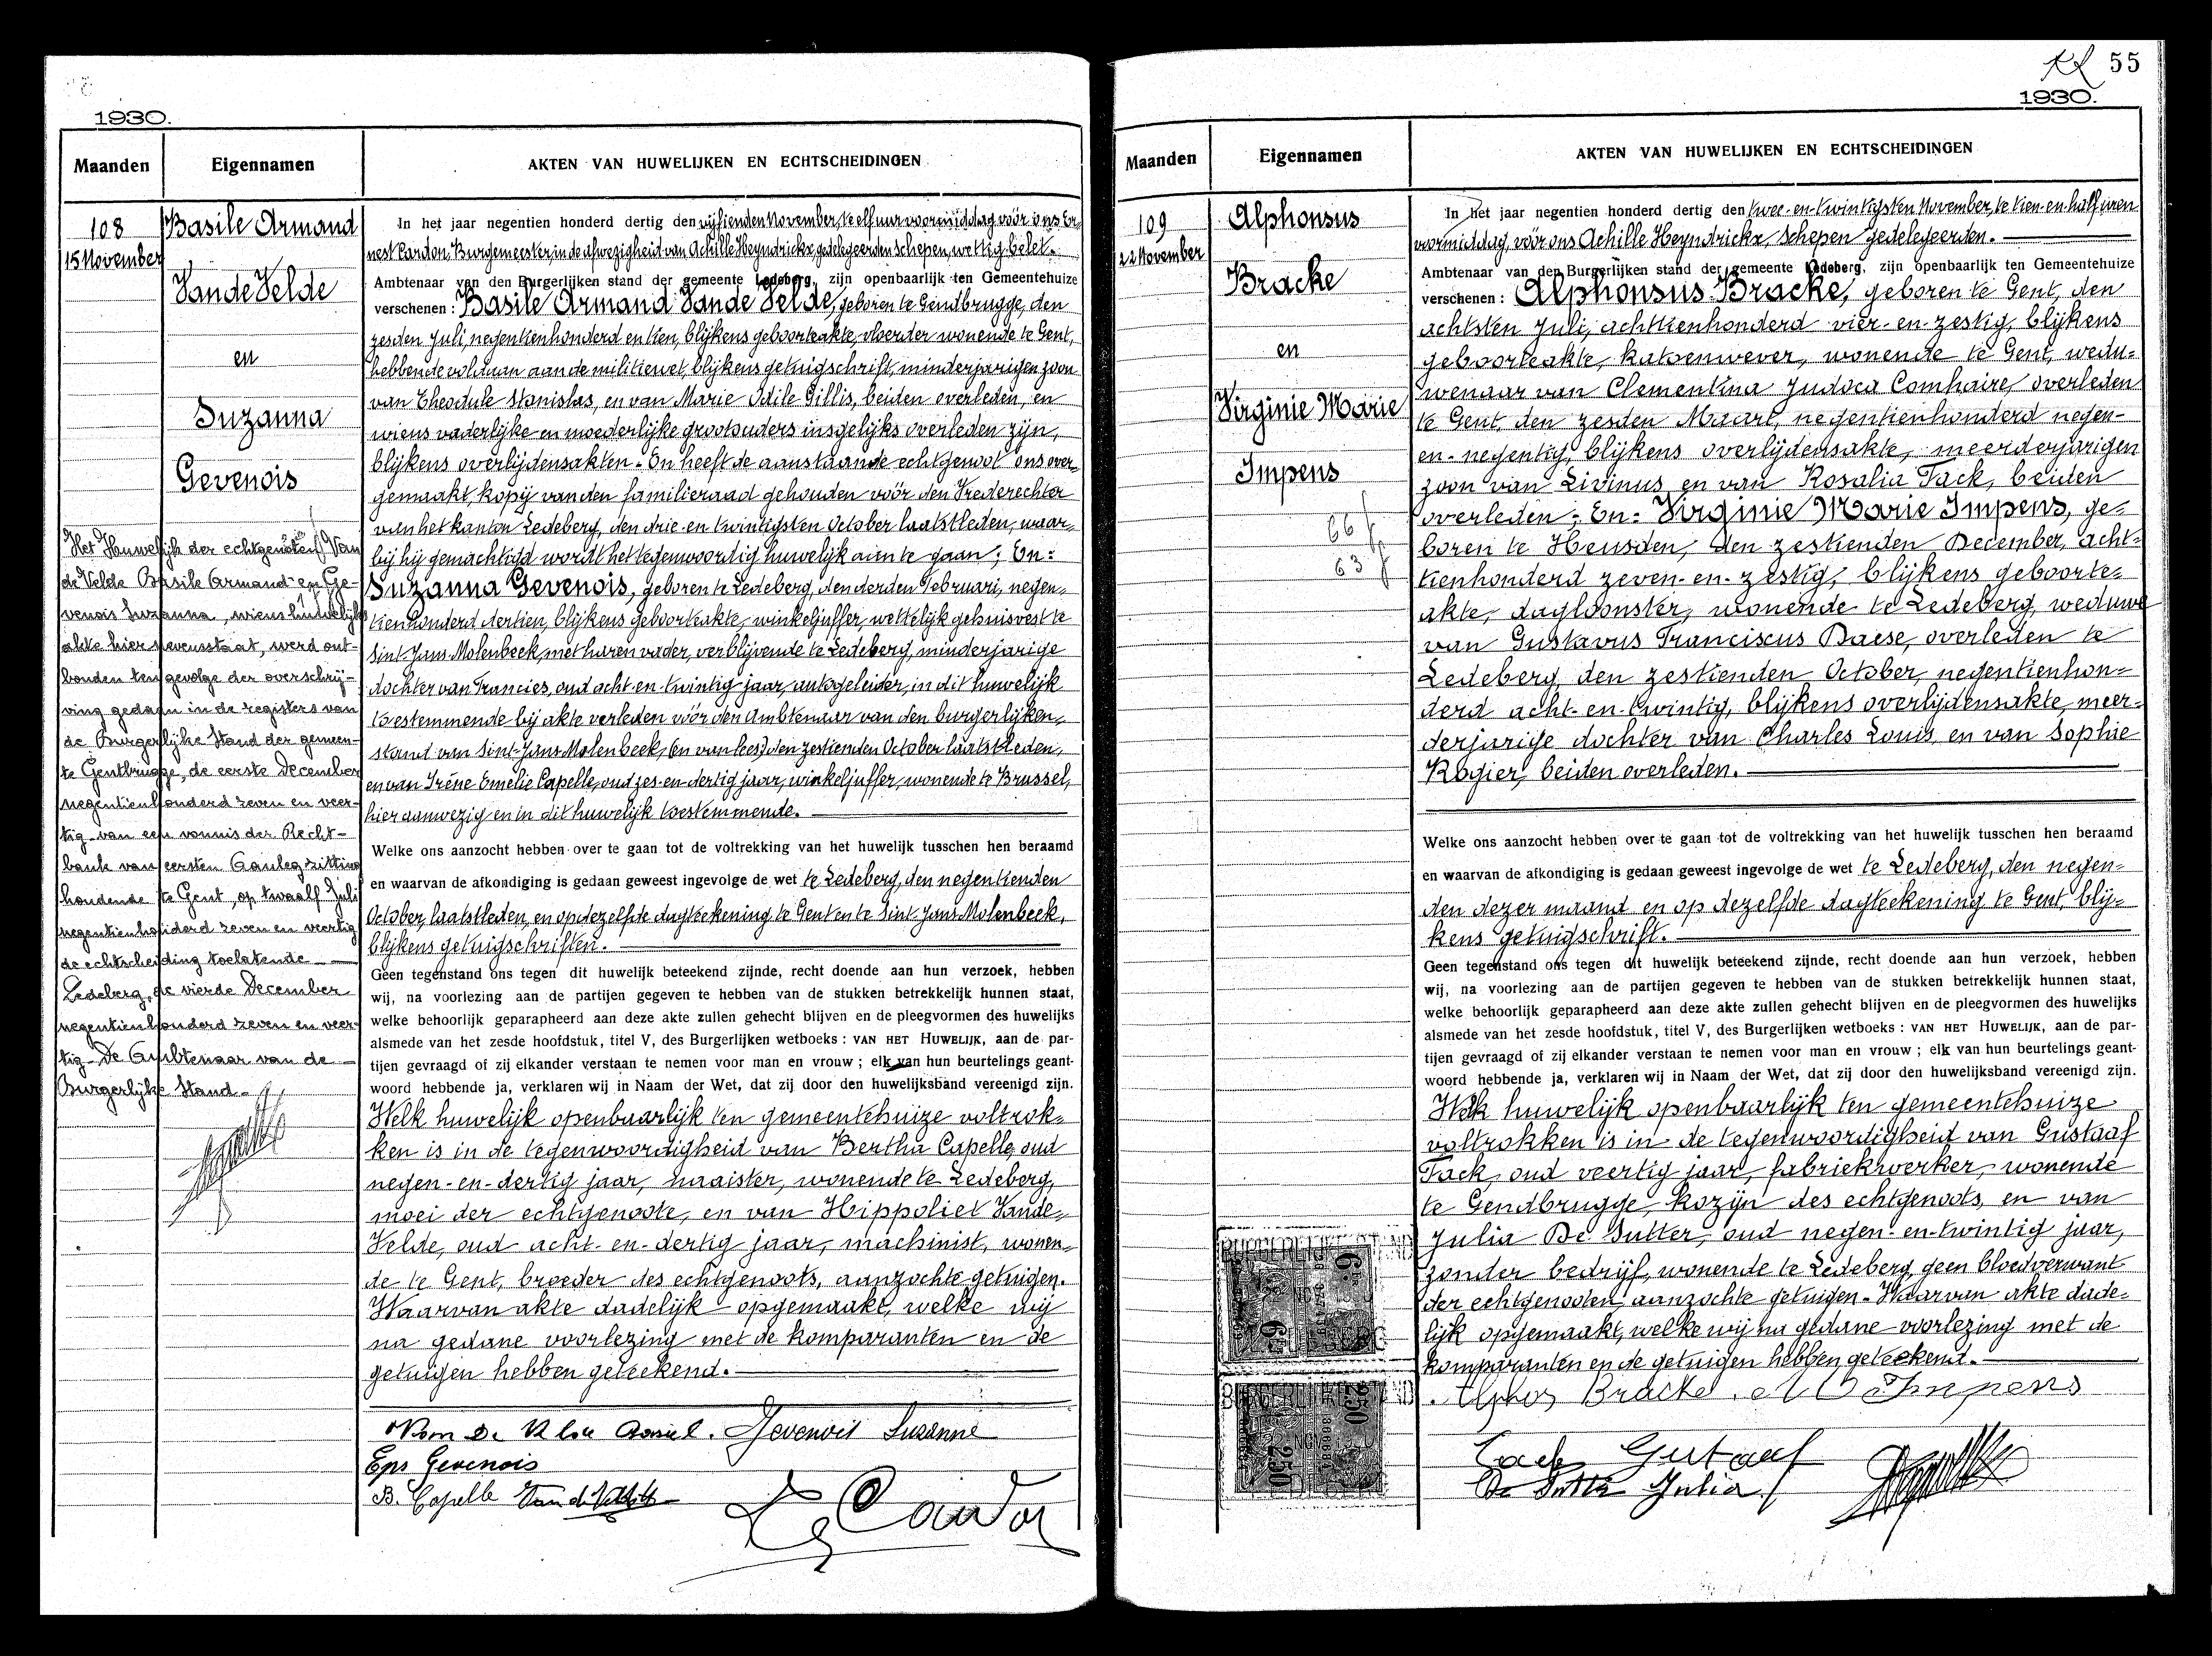 1930.
Maanden
Eigennamen
AKTEN VAN HUWELIJKEN EN ECHTSCHEIDINGEN
108
15 November
Basile Armand
Vande Velde
en
Suzanna
Gevenois
Het Huwelijk der echtgenoten Van
de Velde Basile Armand en Ge-
venois Suzanna, wiens huwelijks
akte hier nevensstaat, werd ont-
bonden tengevolge der overschrij-
ving gedaan in de registers van
de Burgerlijke Stand der gemeen-
te Gentbrugge, de eerste December
negentienhonderd zeven en veer-
tig van een vonnis der Recht-
bank van eersten Aanleg zitting
houdende te Gent, op twaalf Juli
negentienhonderd zeven en veertig
de echtscheiding toelatende
Ledeberg, de vierde December
negentienhonderd zeven en veer-
tig - De Ambtenaar van de
Burgerlijke Stand -
In het jaar negentien honderd dertig den vijftienden November, te elf uur voormiddag vóór ons Er-
nest Cardon, Burgemeester, in de afwezigheid van Achille Heyndrickx, gedelegeerden Schepen, wettig belet.
Ambtenaar van den Burgerlijken stand der gemeente Ledeberg, zijn openbaarlijk ten Gemeentehuize
verschenen : Basile Armand Vande Velde, geboren te Gendbrugge, den
zesden Juli, negentienhonderd en tien, blijkens geboorteakte, vloerder wonende te Gent,
hebbende voldaan aan de militiewet, blijkens getuigschrift, minderjarigen zoon
van Theodule Stanislas, en van Marie Odile Gillis, beiden overleden, en
wiens vaderlijke en moederlijke grootouders insgelijks overleden zijn,
blijkens overlijdensakten. En heeft de aanstaande echtgenoot ons over-
gemaakt, kopij van den familieraad gehouden vóór den Vrederechter
van het kanton Ledeberg, den drie-en-twintigsten October laatstleden, waar-
bij hij gemachtigd wordt het tegenwoordig huwelijk aan te gaan; En:
Suzanna Gevenois, geboren te Ledeberg, den derden Februari, negen-
tienhonderd dertien, blijkens geboorteakte, winkeljuffer, wettelijk gehuisvest te
Sint-Jans-Molenbeek, met haren vader, verblijvende te Ledeberg, minderjarige
dochter van Francies, oud acht-en-twintig jaar, autogeleider, in dit huwelijk
toestemmende bij akte verleden vóór den Ambtenaar van den burgerlijken
stand van Sint-Jans Molenbeek, (en van lees) den zestienden October laatstleden,
en van Irène Emélie Capelle, oud zes-en-dertig jaar, winkeljuffer, wonende te Brussel,
hier aanwezig en in dit huwelijk toestemmende.
Welke ons aanzocht hebben over te gaan tot de voltrekking van het huwelijk tusschen hen beraamd
en waarvan de afkondiging is gedaan geweest ingevolge de wet te Ledeberg, den negentienden
October, laatstleden, en op dezelfde dagteekening te Gent en te Sint Jans Molenbeek,
blijkens getuigschriften.
Geen tegenstand ons tegen dit huwelijk beteekend zijnde, recht doende aan hun verzoek, hebben
wij, na voorlezing aan de partijen gegeven te hebben van de stukken betrekkelijk hunnen staat,
welke behoorlijk geparapheerd aan deze akte zullen gehecht blijven en de pleegvormen des huwelijks
alsmede van het zesde hoofdstuk, titel V, des Burgerlijken wetboeks : VAN HET HUWELIJK, aan de par-
tijen gevraagd of zij elkander verstaan te nemen voor man en vrouw ; elk van hun beurtelings geant-
woord hebbende ja, verklaren wij in Naam der Wet, dat zij door den huwelijksband vereenigd zijn.
Welk huwelijk openbaarlijk ten gemeentehuize voltrok-
ken is in de tegenwoordigheid van Bertha Capelle, oud
negen-en-dertig jaar, naaister, wonende te Ledeberg,
moei der echtgenoote, en van Hippoliet Vande-
Velde, oud acht-en-dertig jaar, machinist, wonen-
de te Gent, broeder des echtgenoots, aanzochte getuigen.
Waarvan akte dadelijk opgemaakt, welke wij
na gedane voorlezing met de komparanten en de
getuigen hebben geteekend.
Gevenois Suzanne
Gevenois
B. Capelle
Cardon
55
1930.
Maanden
Eigennamen
AKTEN VAN HUWELIJKEN EN ECHTSCHEIDINGEN
109
22 November
Alphonsus
Bracke
en
Virginie Marie
Impens
66 j
63 j
In het jaar negentien honderd dertig den twee-en-twintigsten November, te tien-en-half uren
voormiddag, vóór ons Achille Heyndrickx, Schepen gedelegeerden.
Ambtenaar van den Burgerlijken stand der gemeente Ledeberg, zijn openbaarlijk ten Gemeentehuize
verschenen : Alphonsus Bracke, geboren te Gent, den
achtsten Juli, achttienhonderd vier-en-zestig, blijkens
geboorteakte, katoenwever, wonende te Gent, wedu-
wenaar van Clementina Judoca Comhaire, overleden
te Gent, den zesden Maart, negentienhonderd negen-
en-negentig, blijkens overlijdensakte, meerderjarigen
zoon van Livinus, en van Rosalia Tack, beiden
overleden; En: Virginie Marie Impens, ge-
boren te Heusden, den zestienden December, acht-
tienhonderd zeven-en-zestig, blijkens geboorte-
akte, dagloonster, wonende te Ledeberg, weduwe
van Gustavus Franciscus Daese, overleden te
Ledeberg, den zestienden October, negentienhon-
derd acht-en-twintig, blijkens overlijdensakte, meer-
derjarige dochter van Charles Louis, en van Sophie
Rogier, beiden overleden.
Welke ons aanzocht hebben over te gaan tot de voltrekking van het huwelijk tusschen hen beraamd
en waarvan de afkondiging is gedaan geweest ingevolge de wet te Ledeberg, den negen-
den dezer maand en op dezelfde dagteekening te Gent, blij-
kens getuigschrift.
Geen tegenstand ons tegen dit huwelijk beteekend zijnde, recht doende aan hun verzoek, hebben
wij, na voorlezing aan de partijen gegeven te hebben van de stukken betrekkelijk hunnen staat,
welke behoorlijk geparapheerd aan deze akte zullen gehecht blijven en de pleegvormen des huwelijks
alsmede van het zesde hoofdstuk, titel V, des Burgerlijken wetboeks : VAN HET HUWELIJK, aan de par-
tijen gevraagd of zij elkander verstaan te nemen voor man en vrouw ; elk van hun beurtelings geant-
woord hebbende ja, verklaren wij in Naam der Wet, dat zij door den huwelijksband vereenigd zijn.
Welk huwelijk openbaarlijk ten gemeentehuize
voltrokken is in de tegenwoordigheid van Gustaaf
Tack, oud veertig jaar, fabriekwerker, wonende
te Gendbrugge, kozijn des echtgenoots, en van
Julia De Sutter, oud negen-en-twintig jaar,
zonder bedrijf, wonende te Ledeberg, geen bloedverwant
der echtgenooten, aanzochte getuigen. Waarvan akte dade-
lijk opgemaakt, welke wij na gedane voorlezing met de
komparanten en de getuigen hebben geteekend.
Bracke Impens
Tack Gustaaf
De Sutter Julia